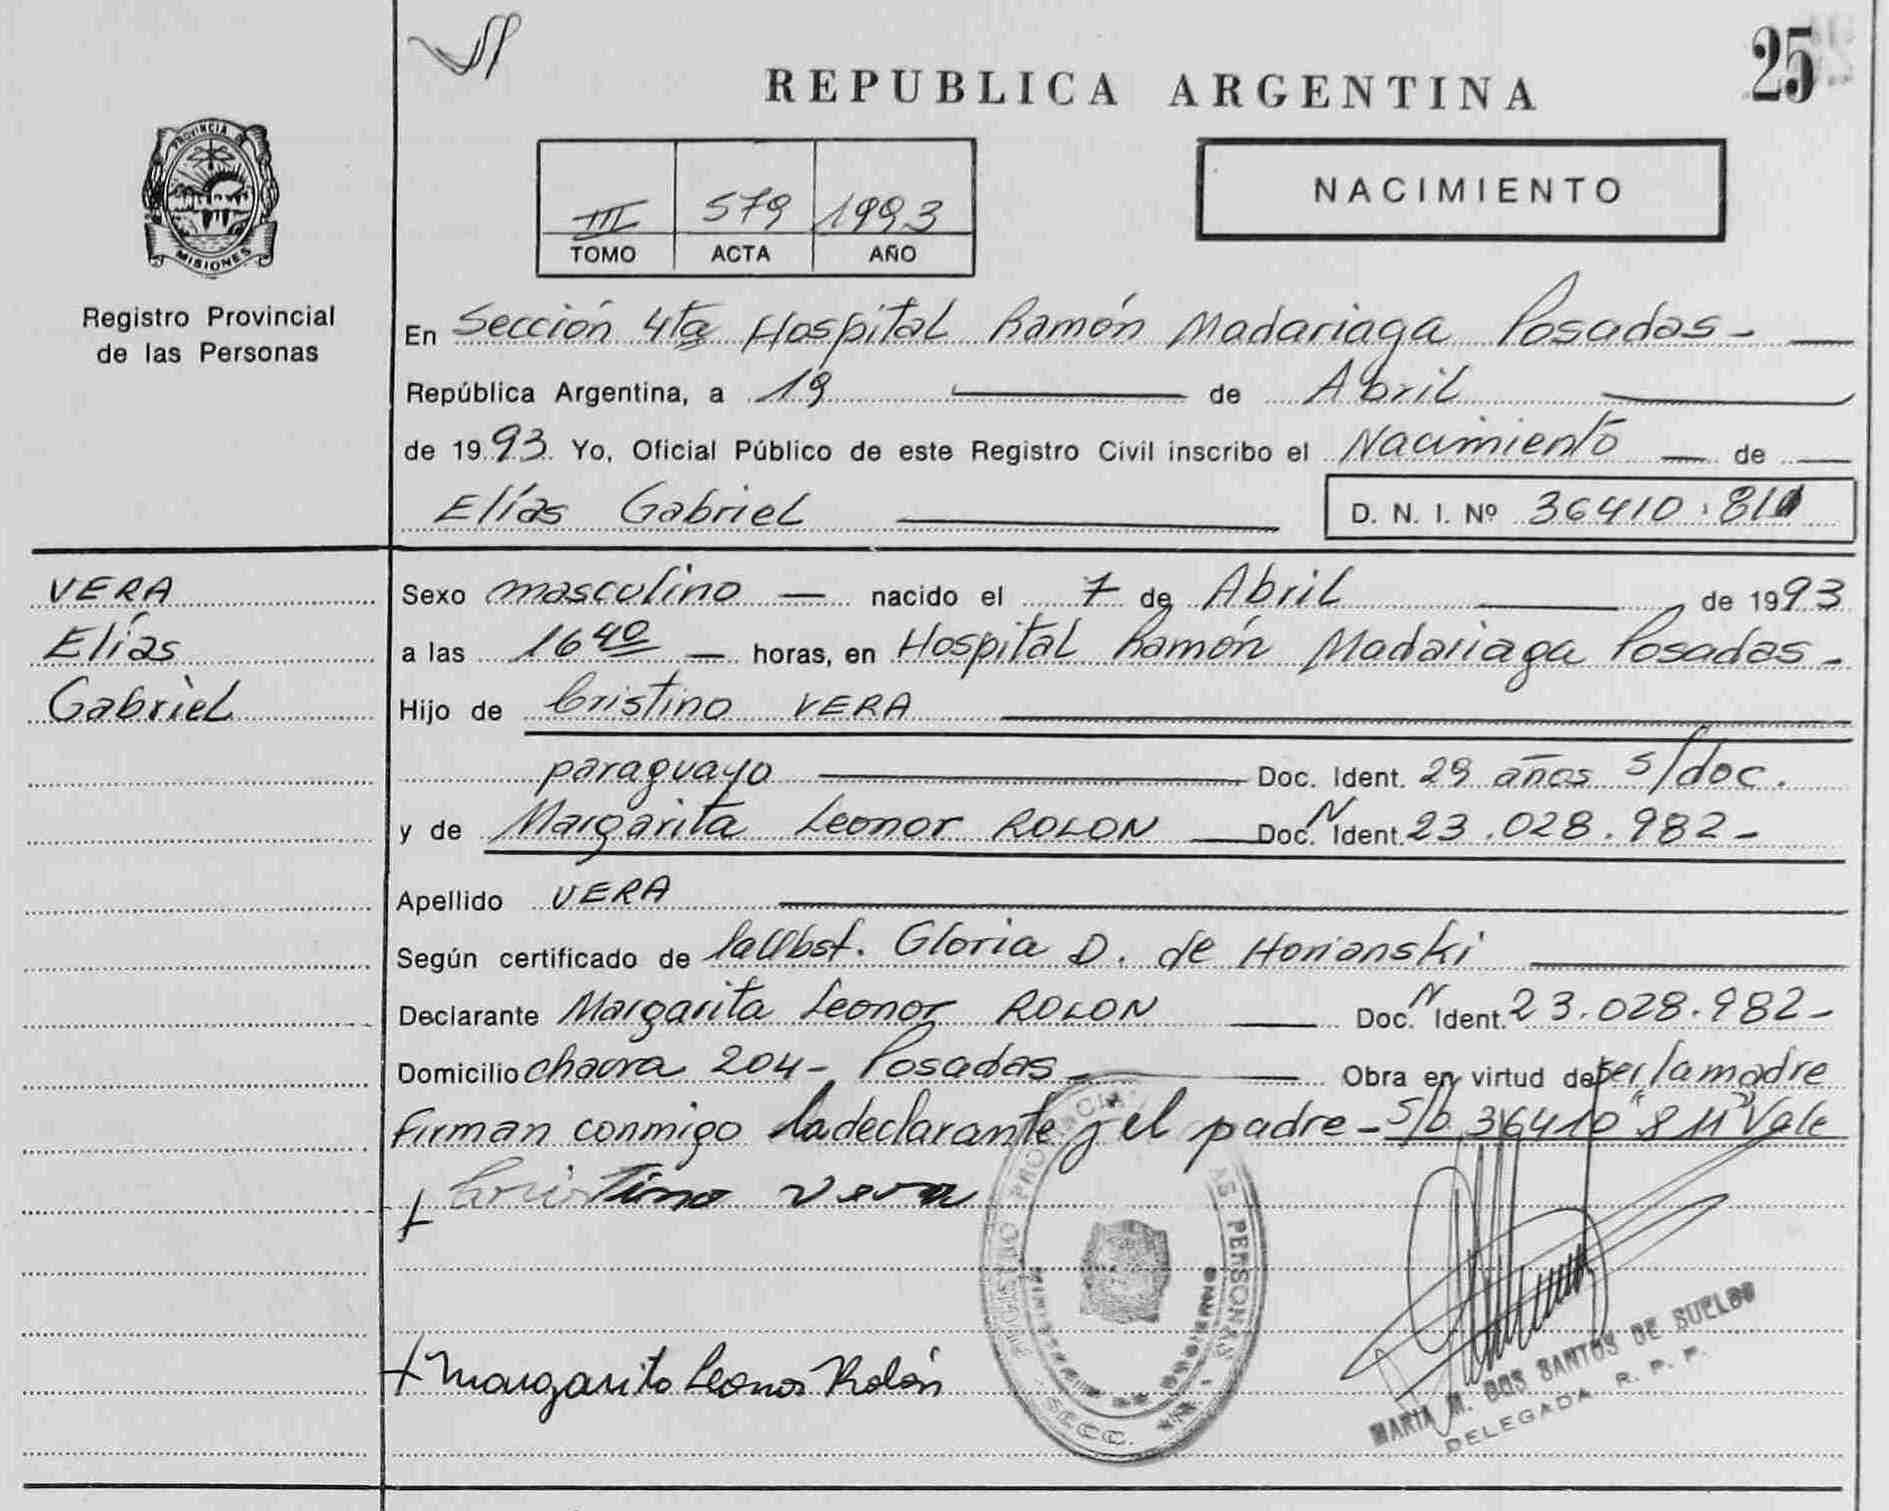 25
REPUBLICA ARGENTINA
PROVINCIA DE
MISIONES
III 579 1993
TOMO ACTA AÑO
NACIMIENTO
Registro Provincial
de las Personas
En Sección 4ta Hospital Ramón Madariaga Posadas-
República Argentina, a 19 de Abril
de 1993 Yo, Oficial Público de este Registro Civil inscribo el Nacimiento de
Elías Gabriel D. N. I. Nº 36410.811
VERA
Elías
Gabriel
Sexo masculino nacido el 7 de Abril de 1993
a las 16 40 horas, en Hospital Ramón Madariaga Posadas-
Hijo de Cristino VERA
paraguayo Doc. Ident. 29 años s/doc.
y de Margarita Leonor ROLON Doc. N Ident. 23.028.982-
Apellido VERA
Según certificado de la Obst. Gloria D. de Horianski
Declarante Margarita Leonor ROLON Doc. N Ident. 23.028.982-
Domicilio chacra 204- Posadas Obra en virtud de ser la madre
firman conmigo la declarante y el padre - S/b 36410 "811" Vale
Cristino vera
Margarita Leonor Rolón
PERSONAS
SECC.
MARIA M. DOS SANTOS DE SUELDO
DELEGADA R. P. P.